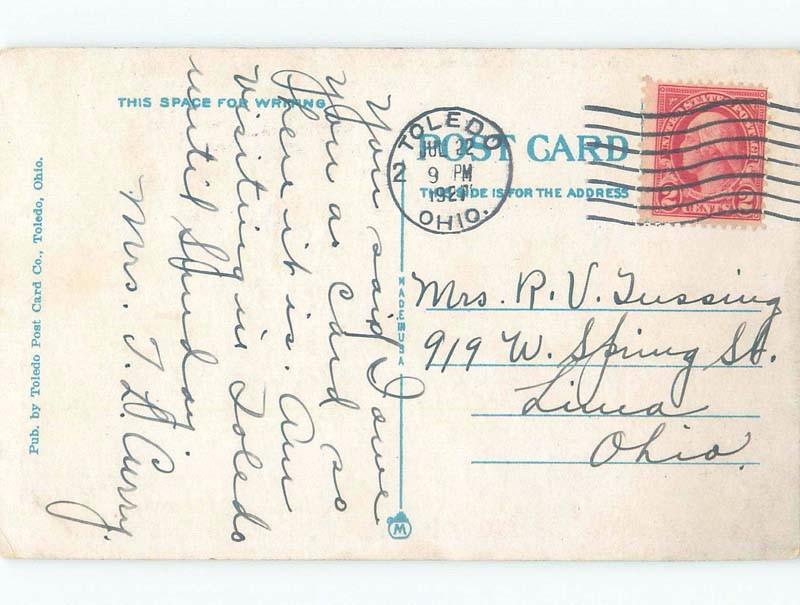 THIS SPACE FOR WRITING
You said I owe
you a card so
here it is. Am
visiting in Toledo
until Sunday
Mrs. T. L. Curry.
Pub. by Toledo Post Card Co., Toledo, Ohio.
MADE IN USA
M
POST CARD
THIS SIDE IS FOR THE ADDRESS
TOLEDO
JUL 22
2
9 PM
1927
OHIO.
UNITED STATES POSTAGE
2 CENTS 2
Mrs. R. V. Tussing
919 W. Spring St.
Lima
Ohio.